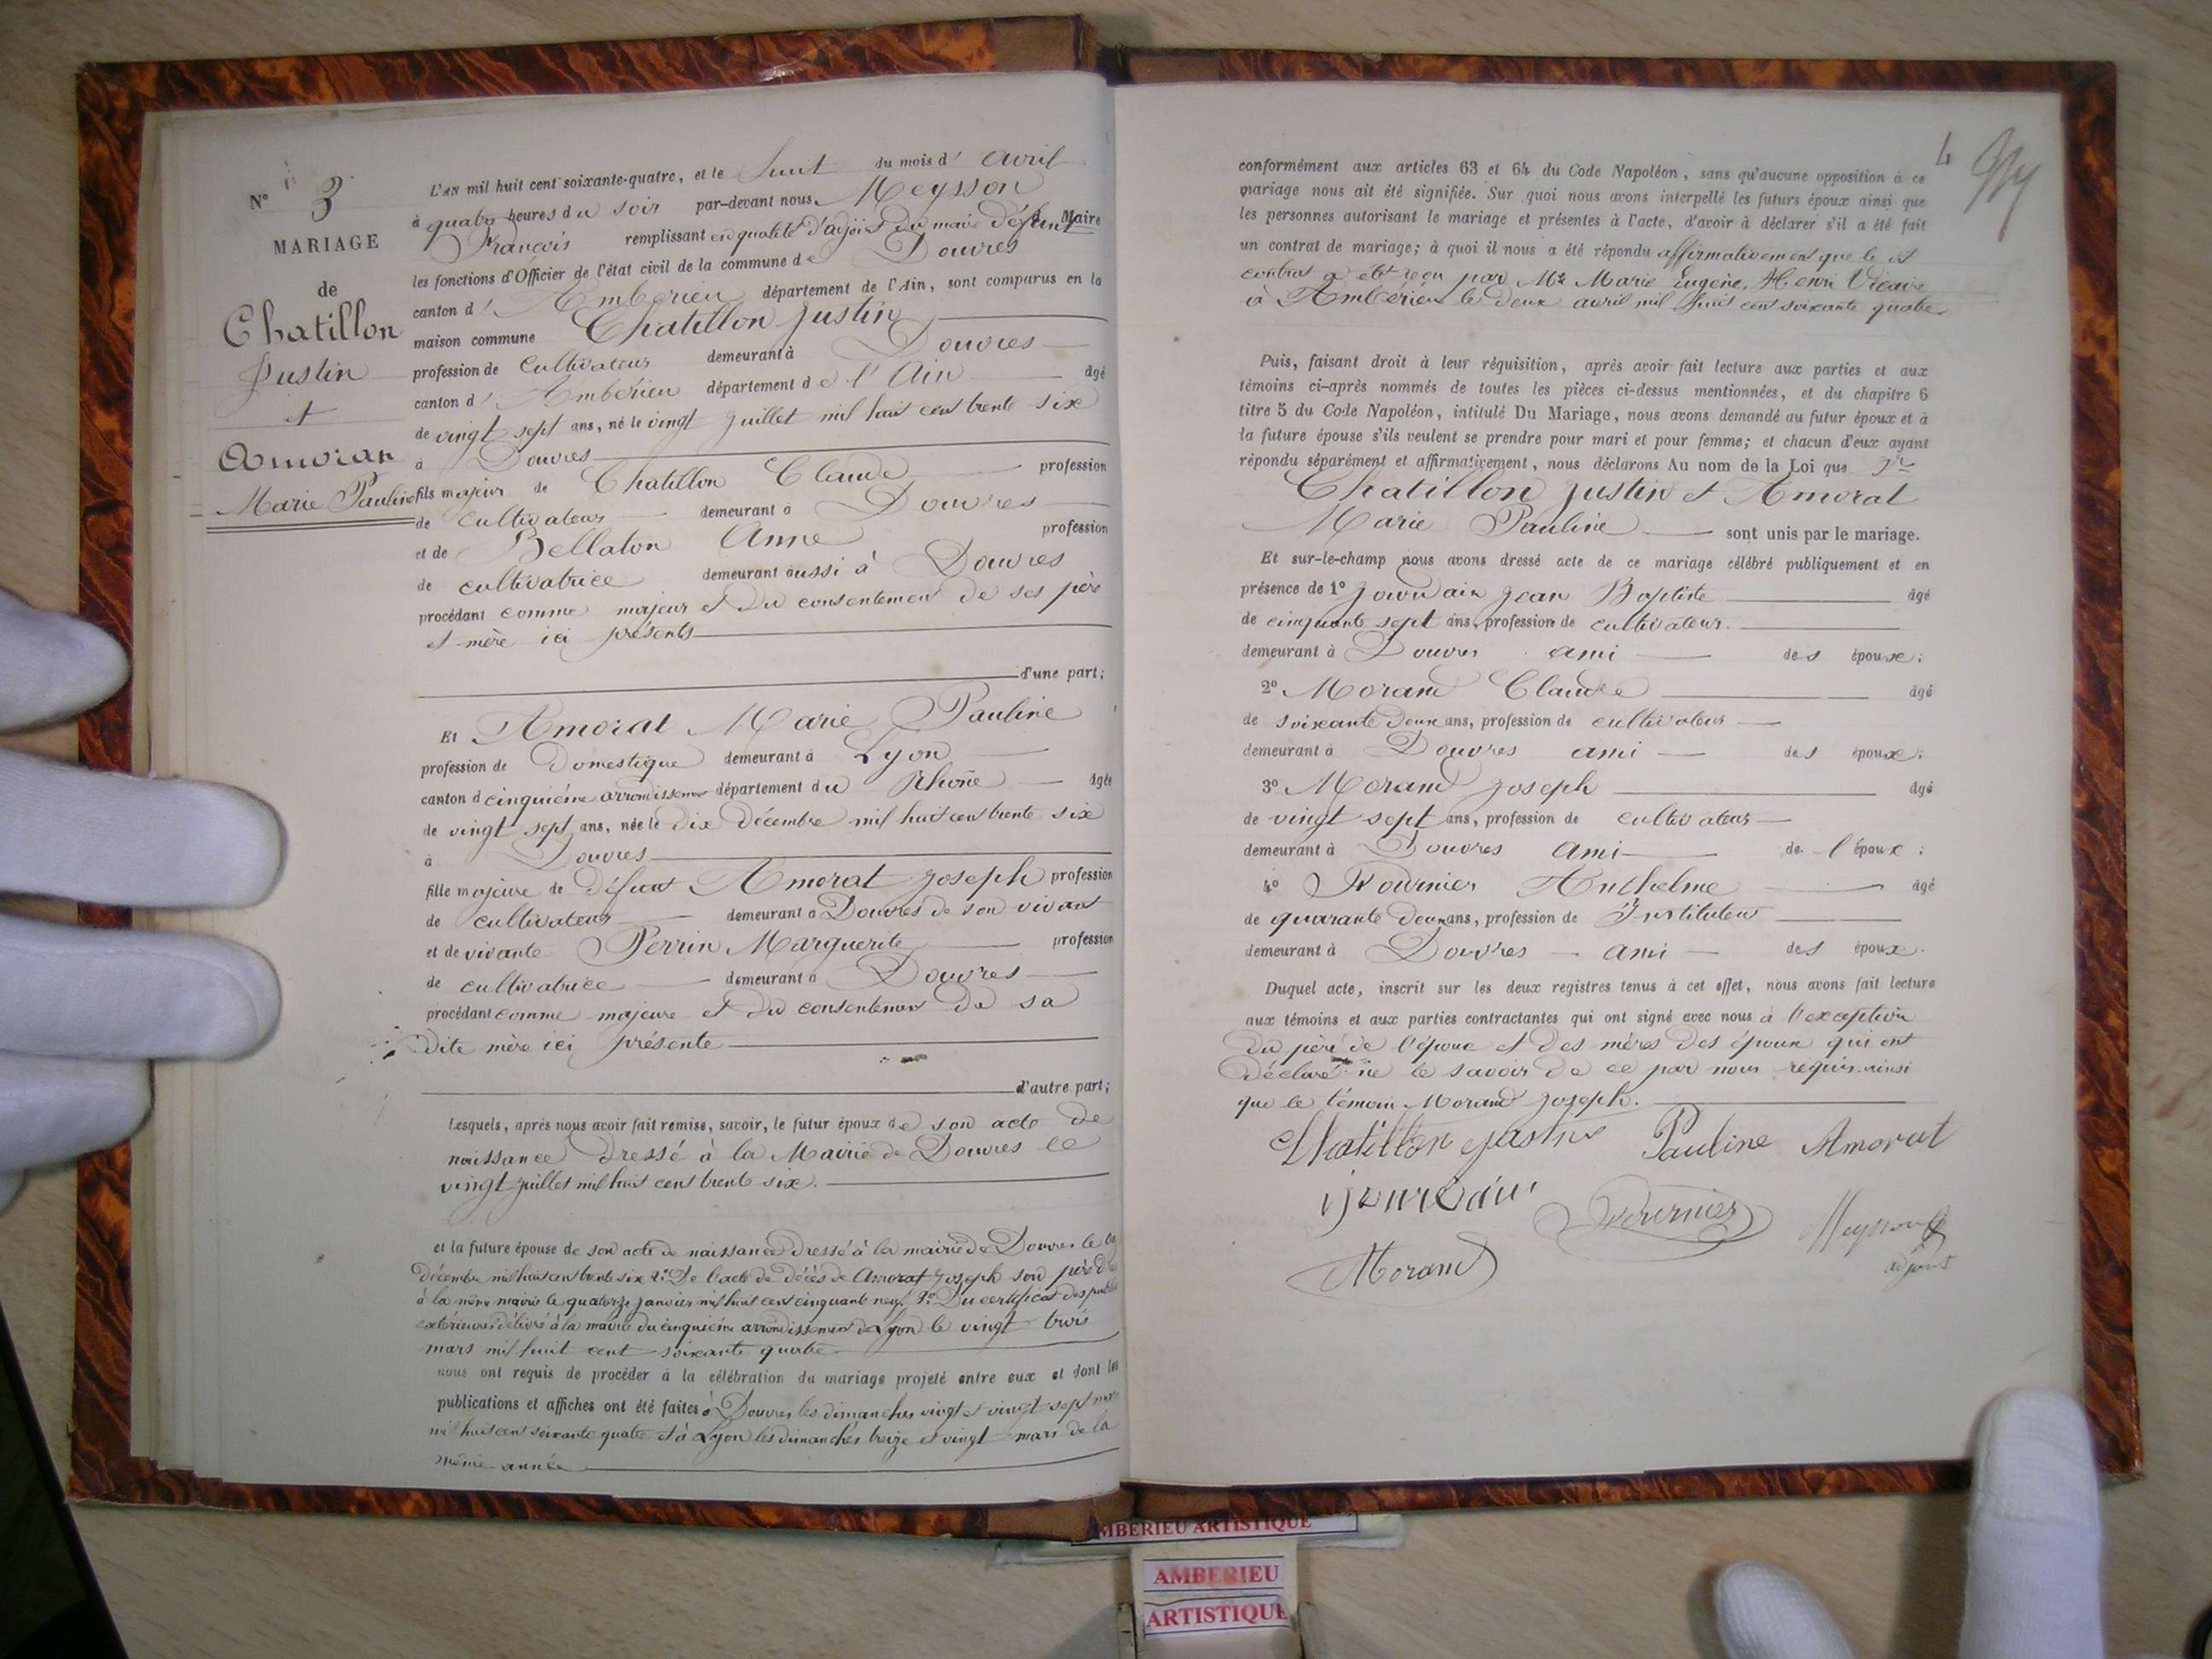 N° 3
MARIAGE
de
Chatillon
Justin
et
Amorat
Marie Pauline
L'AN mil huit cent soixante-quatre, et le huit du mois d' avril
à quatre heures du soir par-devant nous Meysson
François remplissant en qualité d'adjoint du maire défunt Maire
les fonctions d'Officier de l'état civil de la commune de Douvres
canton d' Ambérieu département de l'Ain, sont comparus en la
maison commune Chatillon Justin
profession de cultivateur demeurant à Douvres
canton d' Ambérieu département de l'Ain âgé
de vingt sept ans, né le vingt juillet mil huit cent trente six
à Douvres
fils majeur de Chatillon Claude profession
de cultivateur demeurant à Douvres
et de Bellaton Anne profession
de cultivatrice demeurant aussi à Douvres
procédant comme majeur et du consentement de ses père
et mère ici présents
d'une part;
Et Amorat Marie Pauline
profession de Domestique demeurant à Lyon
canton d cinquième arrondissement département du Rhône âgée
de vingt sept ans, née le dix décembre mil huit cent trente six
à Douvres
fille majeure de défunt Amorat Joseph profession
de cultivateur demeurant à Douvres de son vivant
et de vivante Perrin Marguerite profession
de cultivatrice demeurant à Douvres
procédant comme majeure et du consentement de sa
dite mère ici présente
d'autre part;
Lesquels, après nous avoir fait remise, savoir, le futur époux de son acte de
naissance dressé à la Mairie de Douvres le
vingt juillet mil huit cent trente six.
et la future épouse de son acte de naissance dressé à la mairie de Douvres le
décembre mil huit cent trente six 2° De l'acte de décès de Amorat Joseph son père
à la même mairie le quatorze janvier mil huit cent cinquante neuf. 3° Du certificat des
extérieures délivré à la mairie du cinquième arrondissement de Lyon le vingt trois
mars mil huit cent soixante quatre
nous ont requis de procéder à la célébration du mariage projeté entre eux et dont les
publications et affiches ont été faites à Douvres les dimanches vingt et vingt sept mars
mil huit cent soixante quatre et à Lyon les dimanches treize et vingt mars de la
même année
4
conformément aux articles 63 et 64 du Code Napoléon, sans qu'aucune opposition à ce
mariage nous ait été signifiée. Sur quoi nous avons interpellé les futurs époux ainsi que
les personnes autorisant le mariage et présentes à l'acte, d'avoir à déclarer s'il a été fait
un contrat de mariage; à quoi il nous a été répondu affirmativement que le dit
contrat a été reçu par Me Marie Eugène Henri Vicaire
à Ambérieu le deux avril mil huit cent soixante quatre
Puis, faisant droit à leur réquisition, après avoir fait lecture aux parties et aux
témoins ci-après nommés de toutes les pièces ci-dessus mentionnées, et du chapitre 6
titre 5 du Code Napoléon, intitulé Du Mariage, nous avons demandé au futur époux et à
la future épouse s'ils veulent se prendre pour mari et pour femme; et chacun d'eux ayant
répondu séparément et affirmativement, nous déclarons Au nom de la Loi que
Chatillon Justin et Amorat
Marie Pauline sont unis par le mariage.
Et sur-le-champ nous avons dressé acte de ce mariage célébré publiquement et en
présence de 1° Jourdain Jean Baptiste âgé
de cinquante sept ans, profession de cultivateur.
demeurant à Douvres ami des époux;
2° Morand Claude âgé
de soixante deux ans, profession de cultivateur
demeurant à Douvres ami des époux;
3° Morand Joseph âgé
de vingt sept ans, profession de cultivateur
demeurant à Douvres ami de l'époux;
4° Fournier Anthelme âgé
de quarante deux ans, profession de Instituteur
demeurant à Douvres ami des époux.
Duquel acte, inscrit sur les deux registres tenus à cet effet, nous avons fait lecture
aux témoins et aux parties contractantes qui ont signé avec nous à l'exception
du père de l'époux et des mères des époux qui ont
déclaré ne le savoir de ce par nous requis. ainsi
que le témoin Morand Joseph.
Chatillon Justin Pauline Amorat
Jourdain Fournier Meysson
adjoint
Morand
AMBERIEU ARTISTIQUE
AMBERIEU
ARTISTIQUE